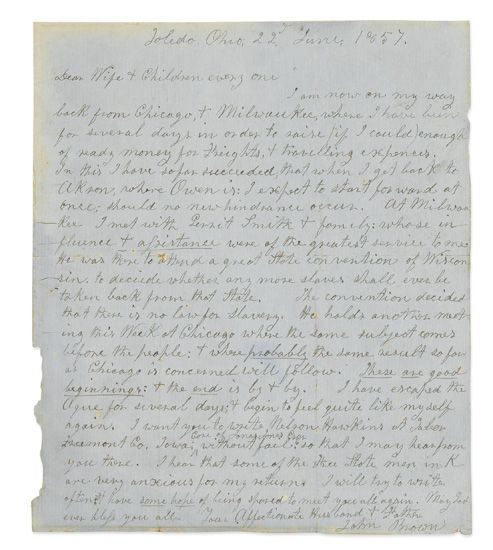 Toledo, Ohio, 22d June, 1857.
Dear Wife & Children every one
I am now on my way
back from Chicago, &, Milwaukee, where I have been
for several days in order to raise (if I could) enough
of ready money for Freights, & travelling expences.
In this I have so far succeeded, that when I get back to
Akron, where Owen is; I expect to start forward at
once; should no new hindrance occur. At Milwau
kee I met with Gerrit Smith & family; whose in
fluence & assistance were of the greatest service to me.
He was there to attend a great State convention of Wiscon
sin to decide whether any more slaves shall ever be
taken back from that State. The convention decided
that there is no law for Slavery. He holds another meet
ing this Week at Chicago where the same subject comes
before the people; & where probably the same result so far
as Chicago is concerned will follow. These are good
beginnings; & the end is by & by. I have escaped the
Ague for several days; & begin to feel quite like myself
again. I want you to write Nelson Hawkins at Tabor
Care of Jonas Jones Esqr
Freemont Co. Iowa, without fail; so that I may hear from
you there. I hear that some of the Free State men in K
are very anxious for my return. I will try to write
often & have some hope of being spared to meet you all again. May God
ever bless you all. Your Affectionate Husband & Father
John Brown